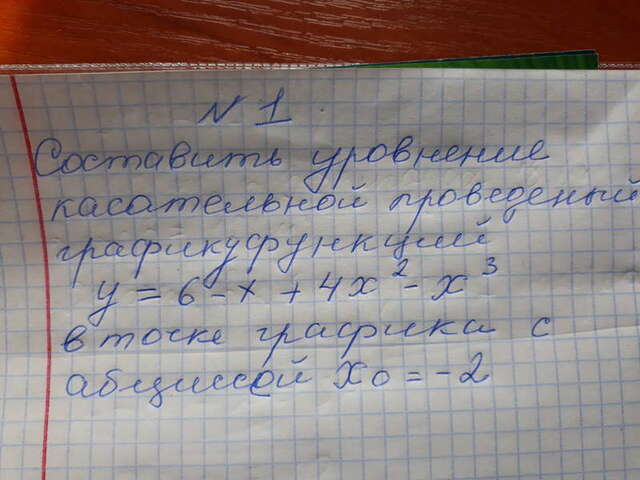 № 1.
Составить уровнение
касательной проведеный
графику функций
y = 6 - x + 4x² - x³
в точке графика с
абциссой x₀ = -2